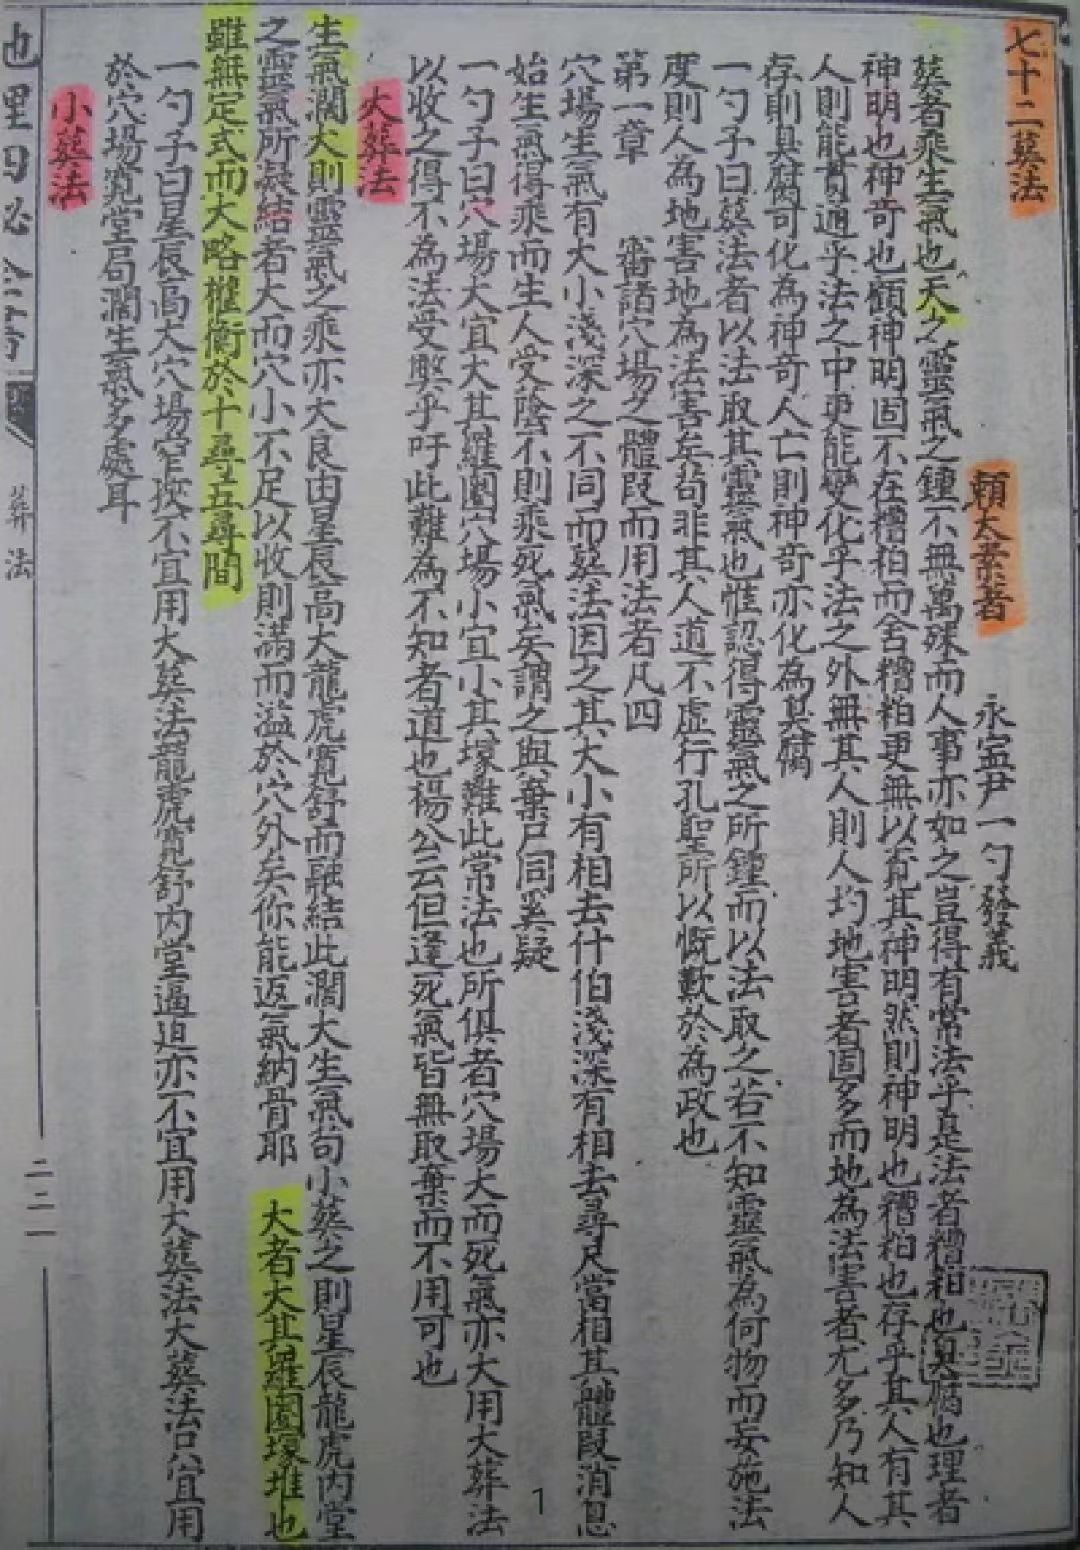 七十二葬法
賴太素著
永寍尹一勺發義
葬者乘生氣也天之靈氣之鍾不無萬殊而人事亦如之豈得有常法乎是法者糟粕也臭腐也理者
神明也神奇也顧神明固不在糟粕而舍糟粕更無以寛其神明然則神明也糟粕也存乎其人有其
人則能貫通乎法之中更能變化乎法之外無其人則人均地害者固多而地為法害者尤多乃知人
存則臭腐可化為神奇人亡則神奇亦化為臭腐
一勺子曰葬法者以法取其靈氣也惟認得靈氣之所鍾而以法取之若不知靈氣為何物而妄施法
度則人為地害地為法害矣苟非其人道不虛行孔聖所以慨歎於為政也
第一章　審諸穴場之體段而用法者凡四
穴場生氣有大小淺深之不同而葬法因之其大小有相去什伯淺深有相去尋尺當相其體段消息
始生氣得乘而生人受陰不則乘死氣矣謂之與棄尸同奚疑
一勺子曰穴場大宜大其羅圍穴場小宜小其塚雖此常法也所俱者穴場大而死氣亦大用大葬法
以收之得不為法受弊乎吁此難為不知者道也楊公云但逢死氣皆無取棄而不用可也
大葬法
生氣濶大則靈氣之乘亦大良由星辰高大龍虎寛舒而融結此濶大生氣苟小葬之則星辰龍虎內堂
之靈氣所凝結者大而穴小不足以收則滿而溢於穴外矣你能返氣納骨耶　大者大其羅圍塚堆也
雖無定式而大略權衡於十尋五尋間
一勺子曰星辰高大穴場窄挨不宜用大葬法龍虎寛舒內堂逼迫亦不宜用大葬法大葬法只宜用
於穴場寛堂局濶生氣多處耳
小葬法
葬法
二二一
1